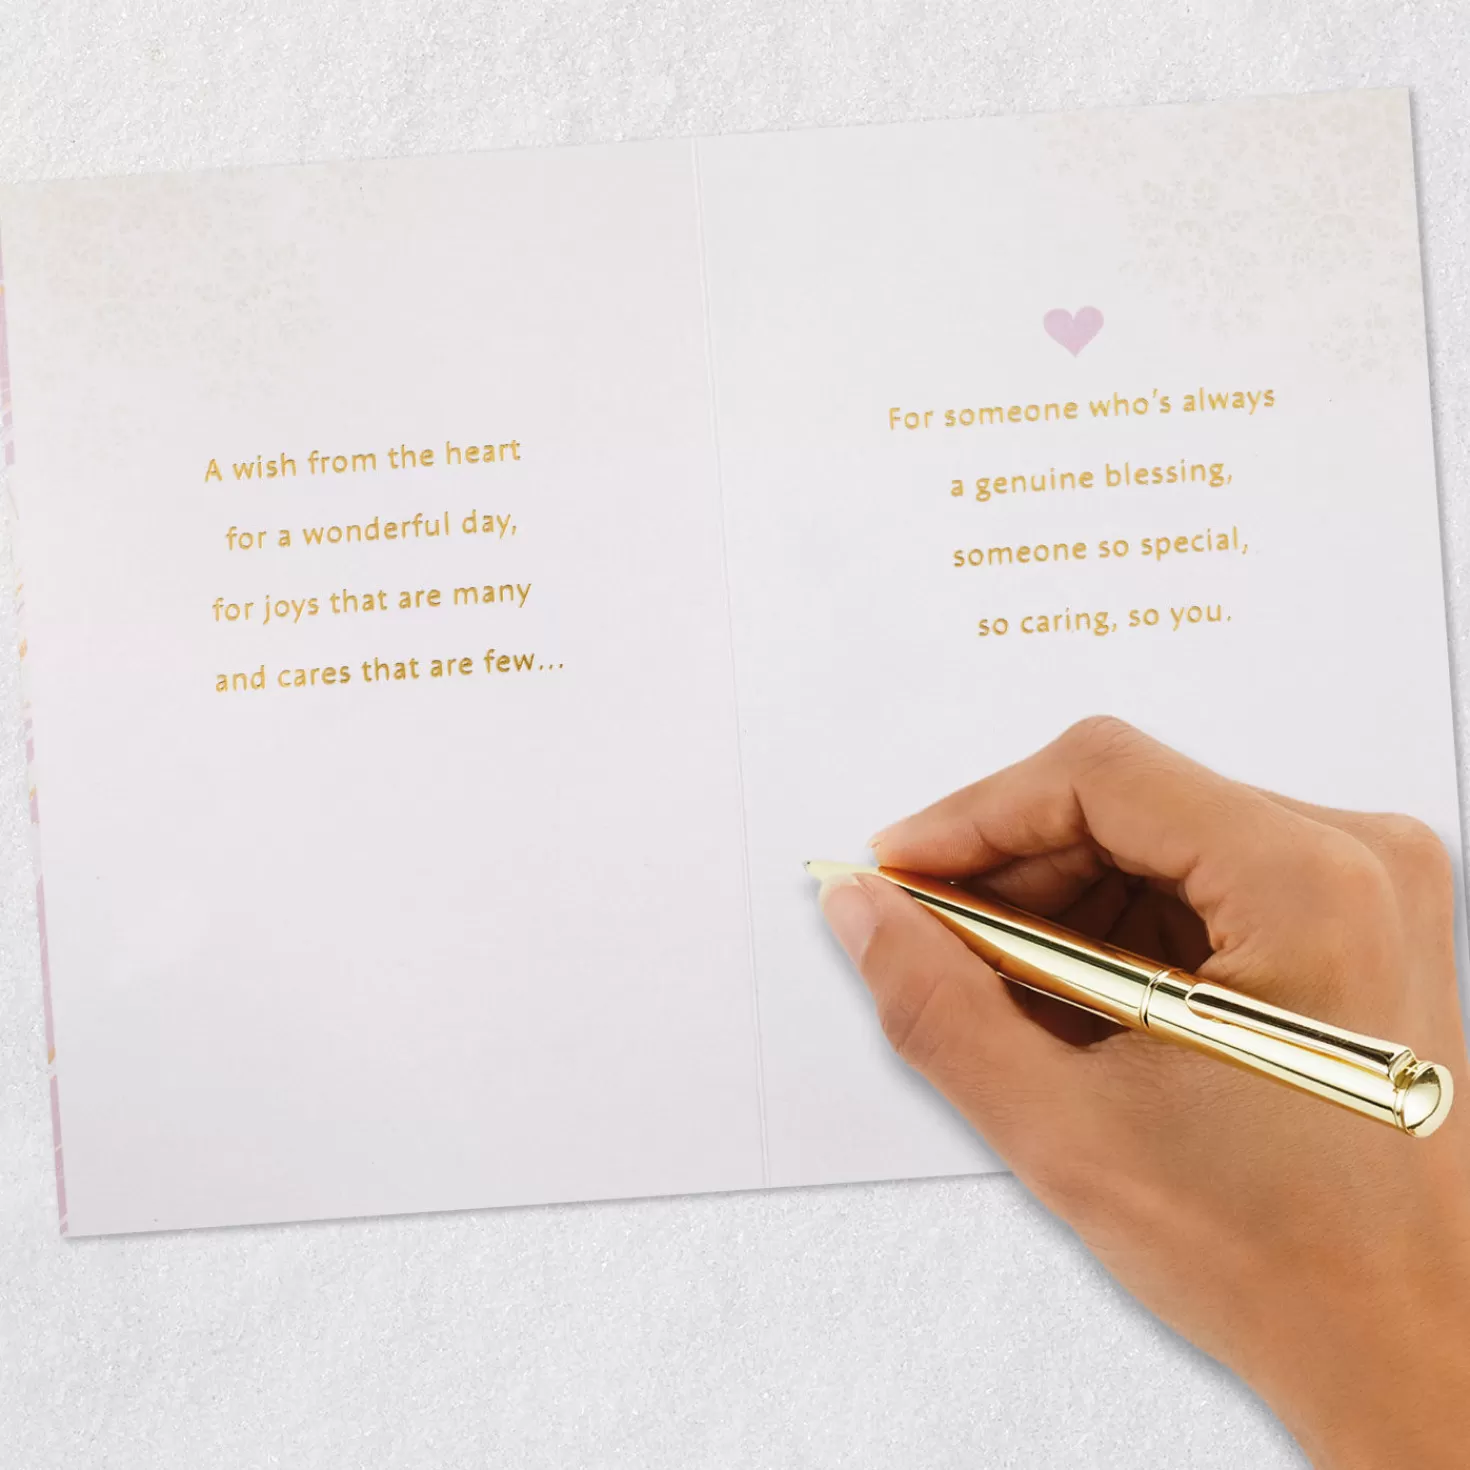 A wish from the heart
for a wonderful day,
for joys that are many
and cares that are few...
For someone who's always
a genuine blessing,
someone so special,
so caring, so you.